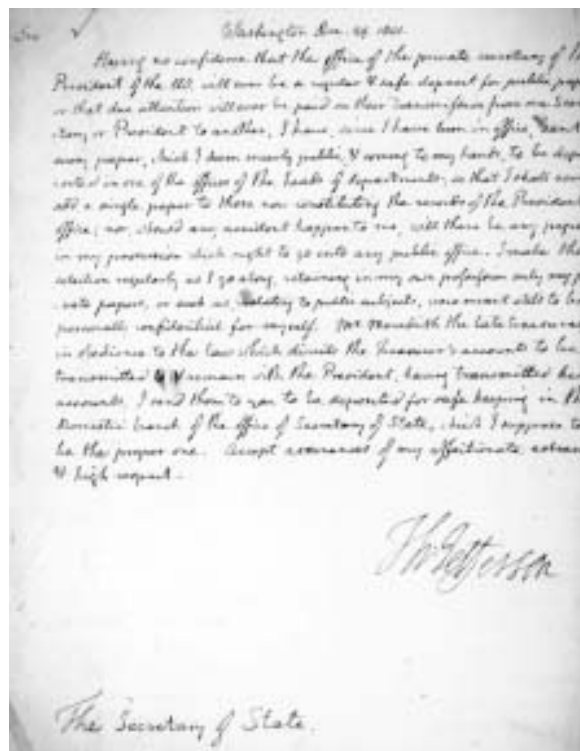 Sir Washington Dec. 29. 1801.
Having no confidence that the office of the private secretary of the
President of the US. will ever be a regular & safe deposit for public pape
or that due attention will ever be paid on their transmission from one Secr
etary or President to another, I have, since I have been in office, sent
every paper, which I deem merely public, & coming to my hands, to be depo
sited in one of the offices of the heads of departments; so that I shall never
add a single paper to those now constituting the records of the President's
office; nor, should any accident happen to me, will there be any papers
in my possession which ought to go into any public office. I make the
selection regularly as I go along, retaining in my own possession only my pri
vate papers, or such as, relating to public subjects, were meant still to be
personally confidential for myself. Mr. Meredith the late treasurer
in obedience to the law which directs the Treasurer's accounts to be
transmitted & remain with the President, having transmitted his
accounts, I send them to you to be deposited for safe keeping in the
Domestic branch of the office of Secretary of State, which I suppose to
be the proper one. Accept assurances of my affectionate esteem
& high respect.
Th: Jefferson
The Secretary of State.